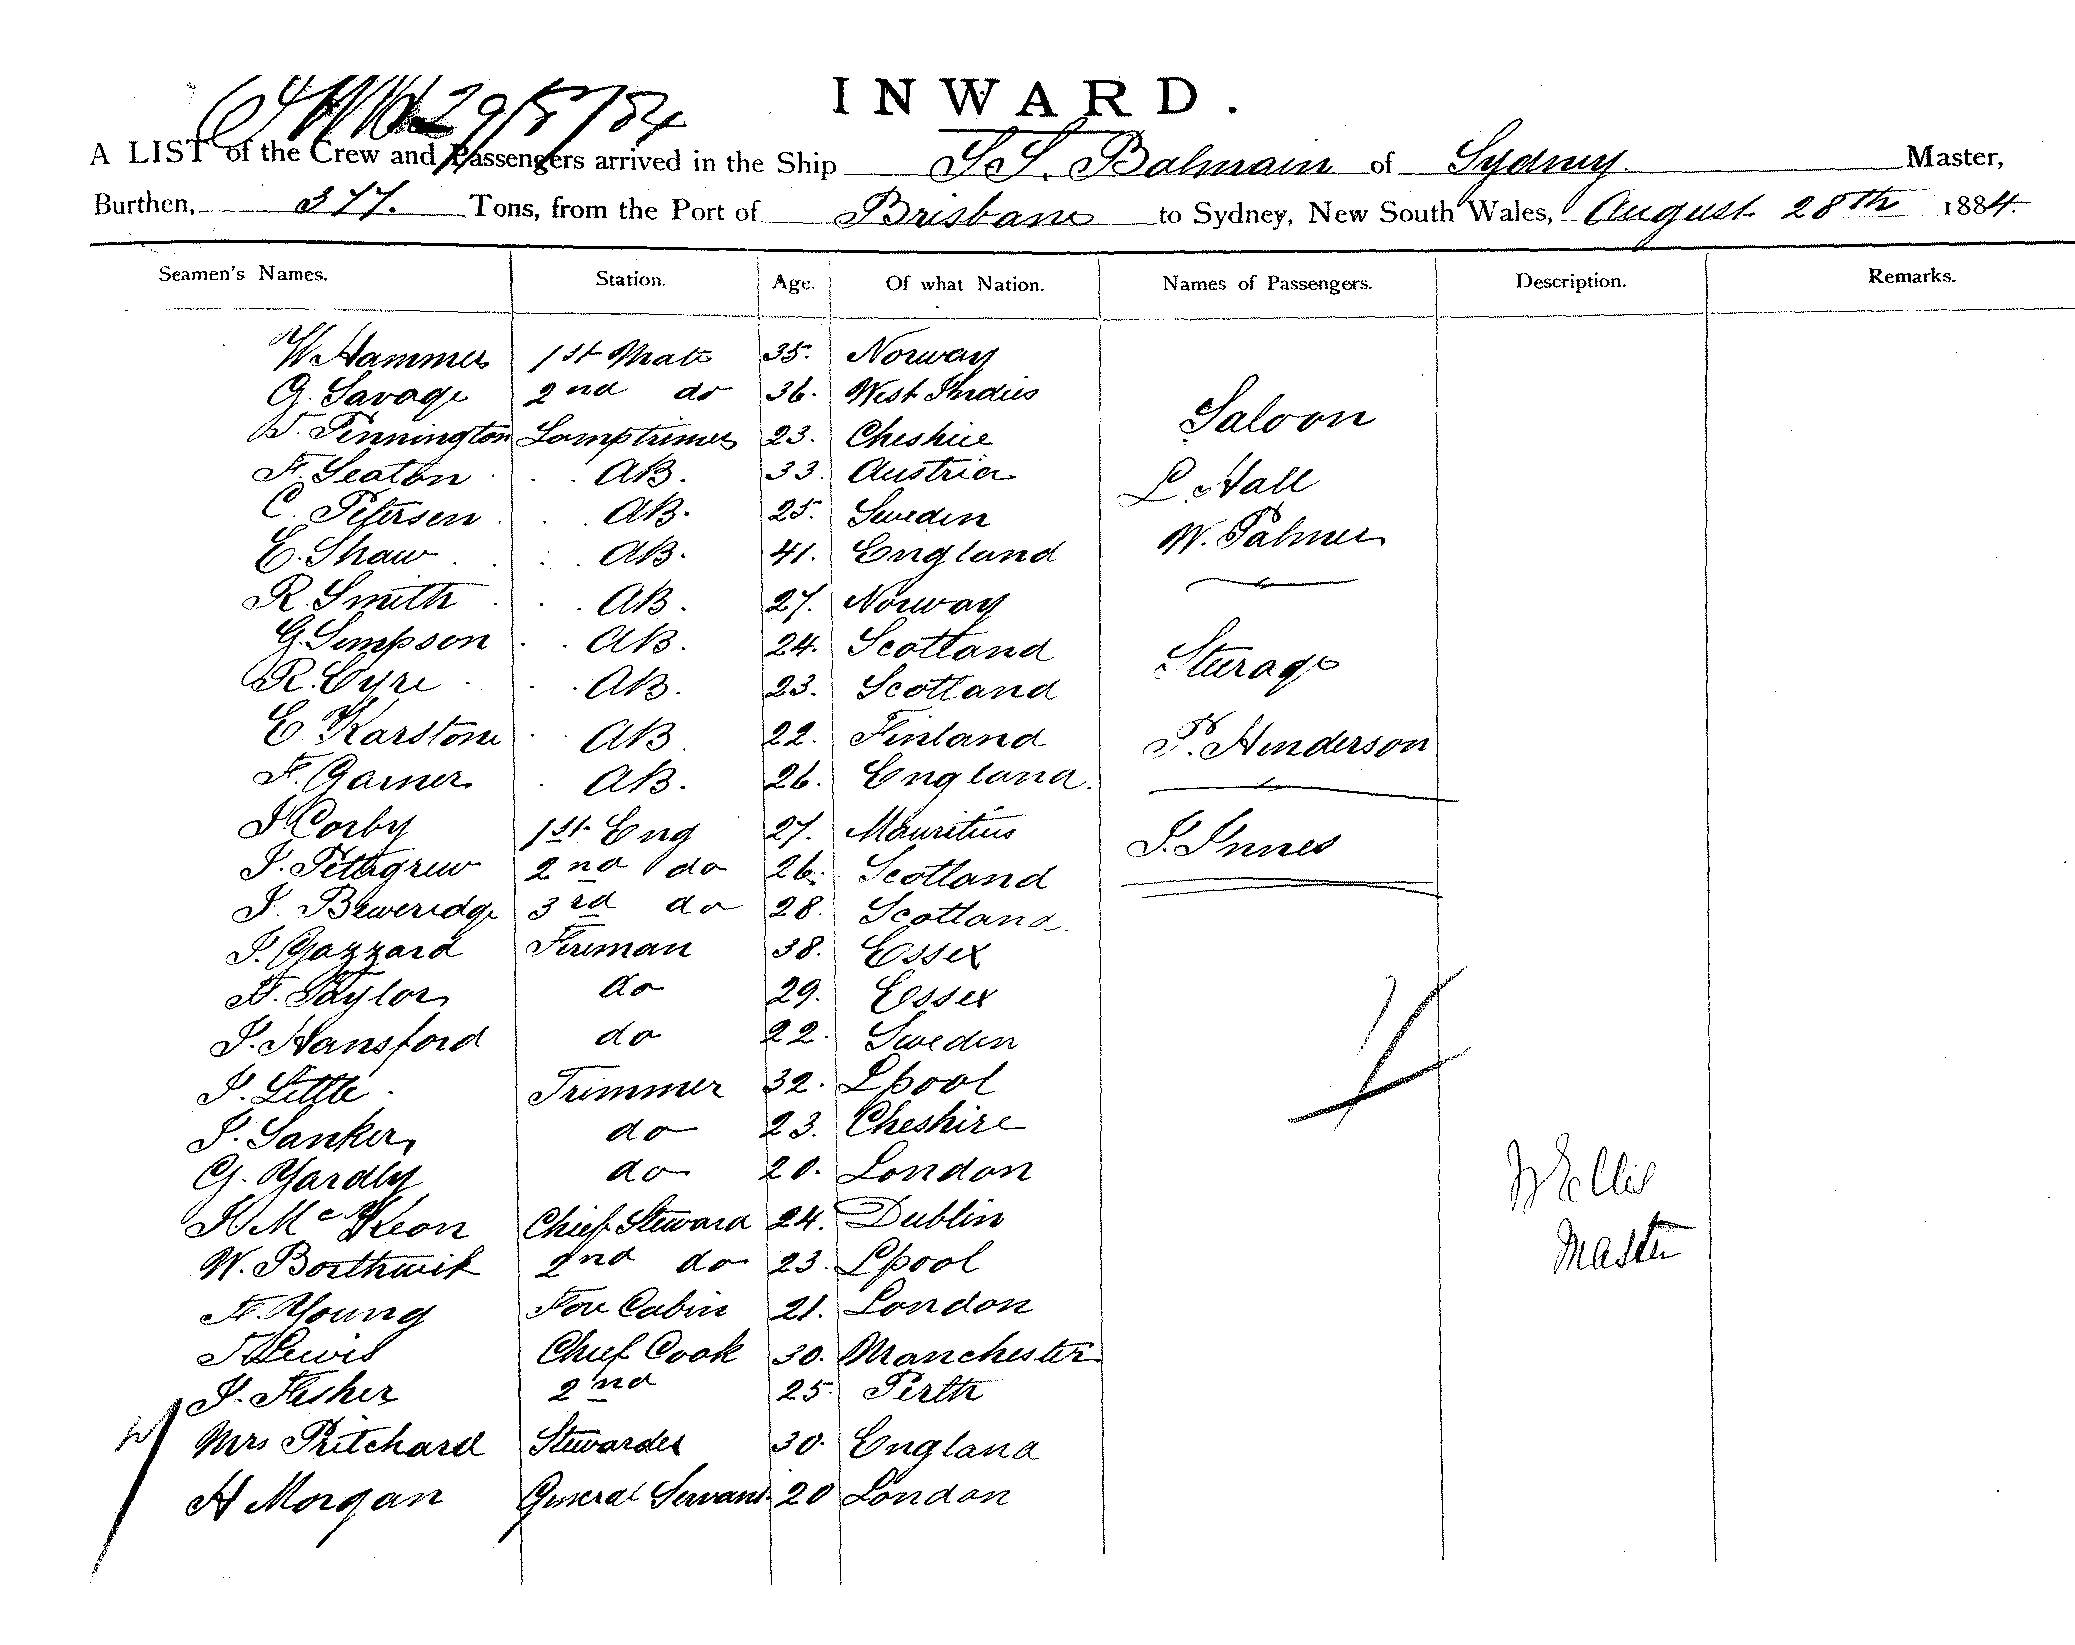 INWARD.
29/8/84
A LIST of the Crew and Passengers arrived in the Ship S.S. Balmain of Sydney Master,
Burthen, 377. Tons, from the Port of Brisbane to Sydney, New South Wales, August 28th 1884.
Seamen's Names. Station. Age. Of what Nation. Names of Passengers. Description. Remarks.
W Hammer 1st Mate 35. Norway
G. Savage 2nd do 36. West Indies
Saloon
T. Pennington Lamptrimer 23. Cheshire
F. Seaton AB. 33. Austria
L. Hall
C. Petersen AB. 25. Sweden
W. Palmer
E. Shaw AB. 41. England
R. Smith AB. 27. Norway
G. Simpson AB. 24. Scotland
Steerage
R. Eyre AB. 23. Scotland
E. Karstone AB 22. Finland
P. Henderson
F. Garner AB. 26. England.
J Corby 1st Eng 27. Mauritius
J. Innes
J. Pettigrew 2nd do 26. Scotland
J. Beweridge 3rd do 28. Scotland.
J. Gazzard Fireman 38. Essex
F. Taylor do 29. Essex
J. Hansford do 22. Sweden
J. Little Trimmer 32. Lpool
J. Sanker do 23. Cheshire
G. Yardly do 20. London
W Ellis
Mc Keon Chief Steward 24. Dublin
Master
W. Borthwik 2nd do 23. Lpool
F. Young Fore Cabin 21. London
T Lewis Chief Cook 30. Manchester
J. Fisher 2nd 25 Perth
Mrs Pritchard Stewardes 30. England
H Morgan General Servant 20 London